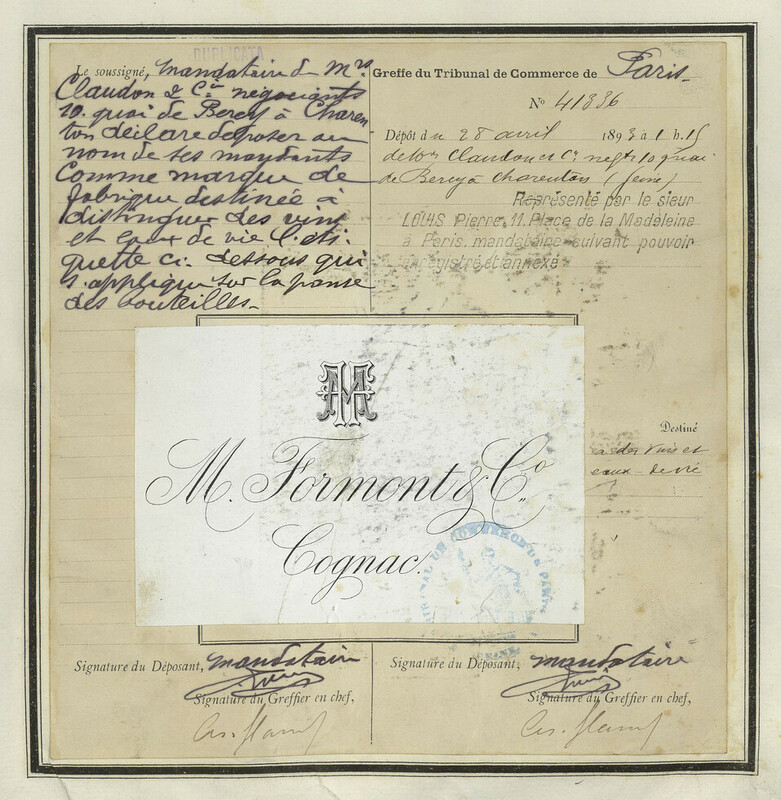 DUPLICATA
Le soussigné, mandataire de Mrs
Claudon & Cie négociants
10. quai de Bercy à Charen
ton déclare déposer au
nom de ses mandants
comme marque de
fabrique destinée à
distinguer des vins
et eaux de vie l'éti-
quette ci-dessous qui
s'applique sur la panse
des bouteilles.
Greffe du Tribunal de Commerce de Paris
No 41836
Dépôt du 28 avril 1893 à 1 h. 15
de Mrs Claudon et Cie negts 10 quai
de Bercy à Charenton (Seine)
Représenté par le sieur
LOUIS Pierre, 11. Place de la Madeleine
à Paris. mandataire suivant pouvoir
enregistré et annexé
M. Formont & Co.
Cognac.
Destiné
à des vins et
eaux-de-vie
TRIBUNAL DE COMMERCE DE PARIS
SEINE
Signature du Déposant, mandataire
Signature du Greffier en chef,
Signature du Déposant, mandataire
Signature du Greffier en chef,